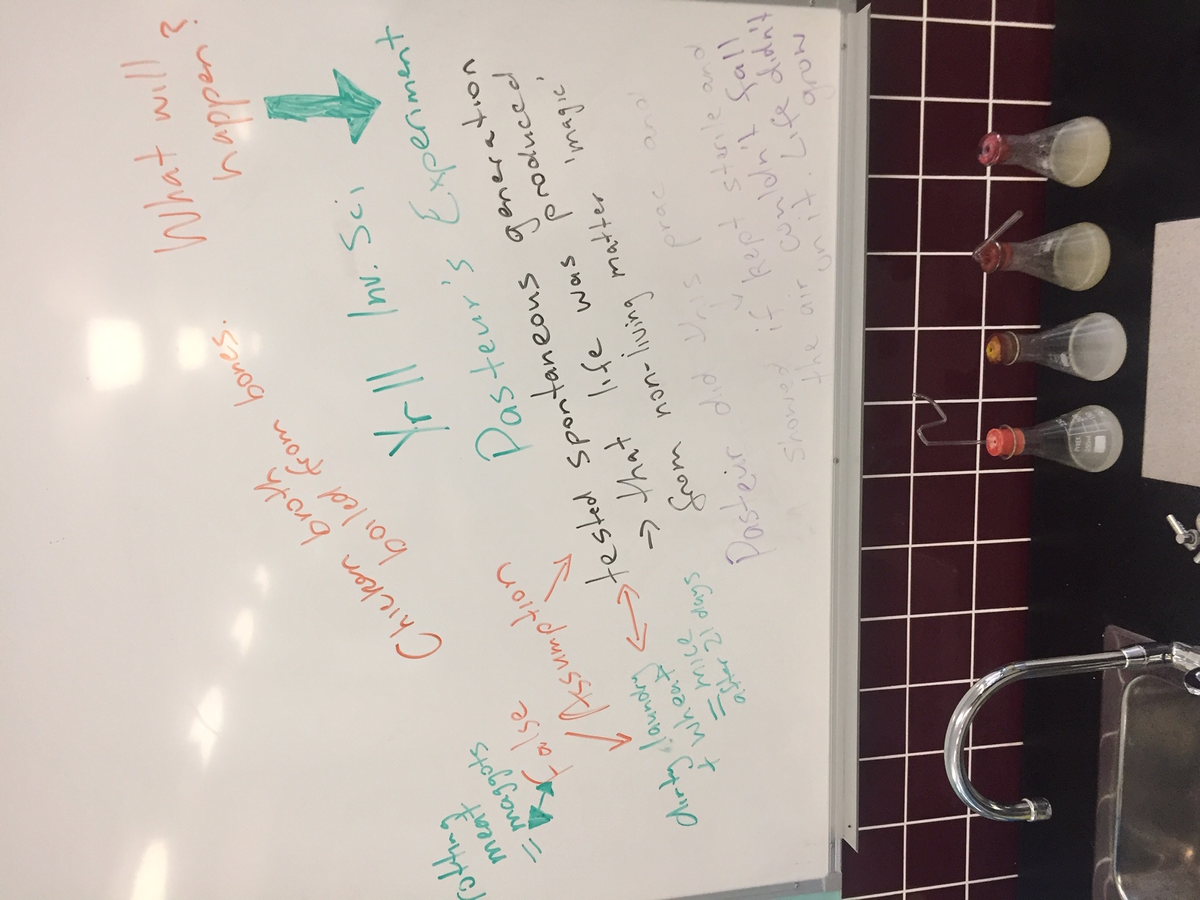 What will
happen?
Chicken broth
boiled from bones.
Yr 11 Inv. Sci.
Pasteur's Experiment
tested spontaneous generation
→ that life was produced
from non-living matter 'magic'
Pasteur did this prac and
showed if kept sterile and
the air couldn't fall
on it. Life didn't
grow
False Assumption
rotting
meat
= maggots
dirty laundry
+ wheat
= mice
after 21 days
PYREX